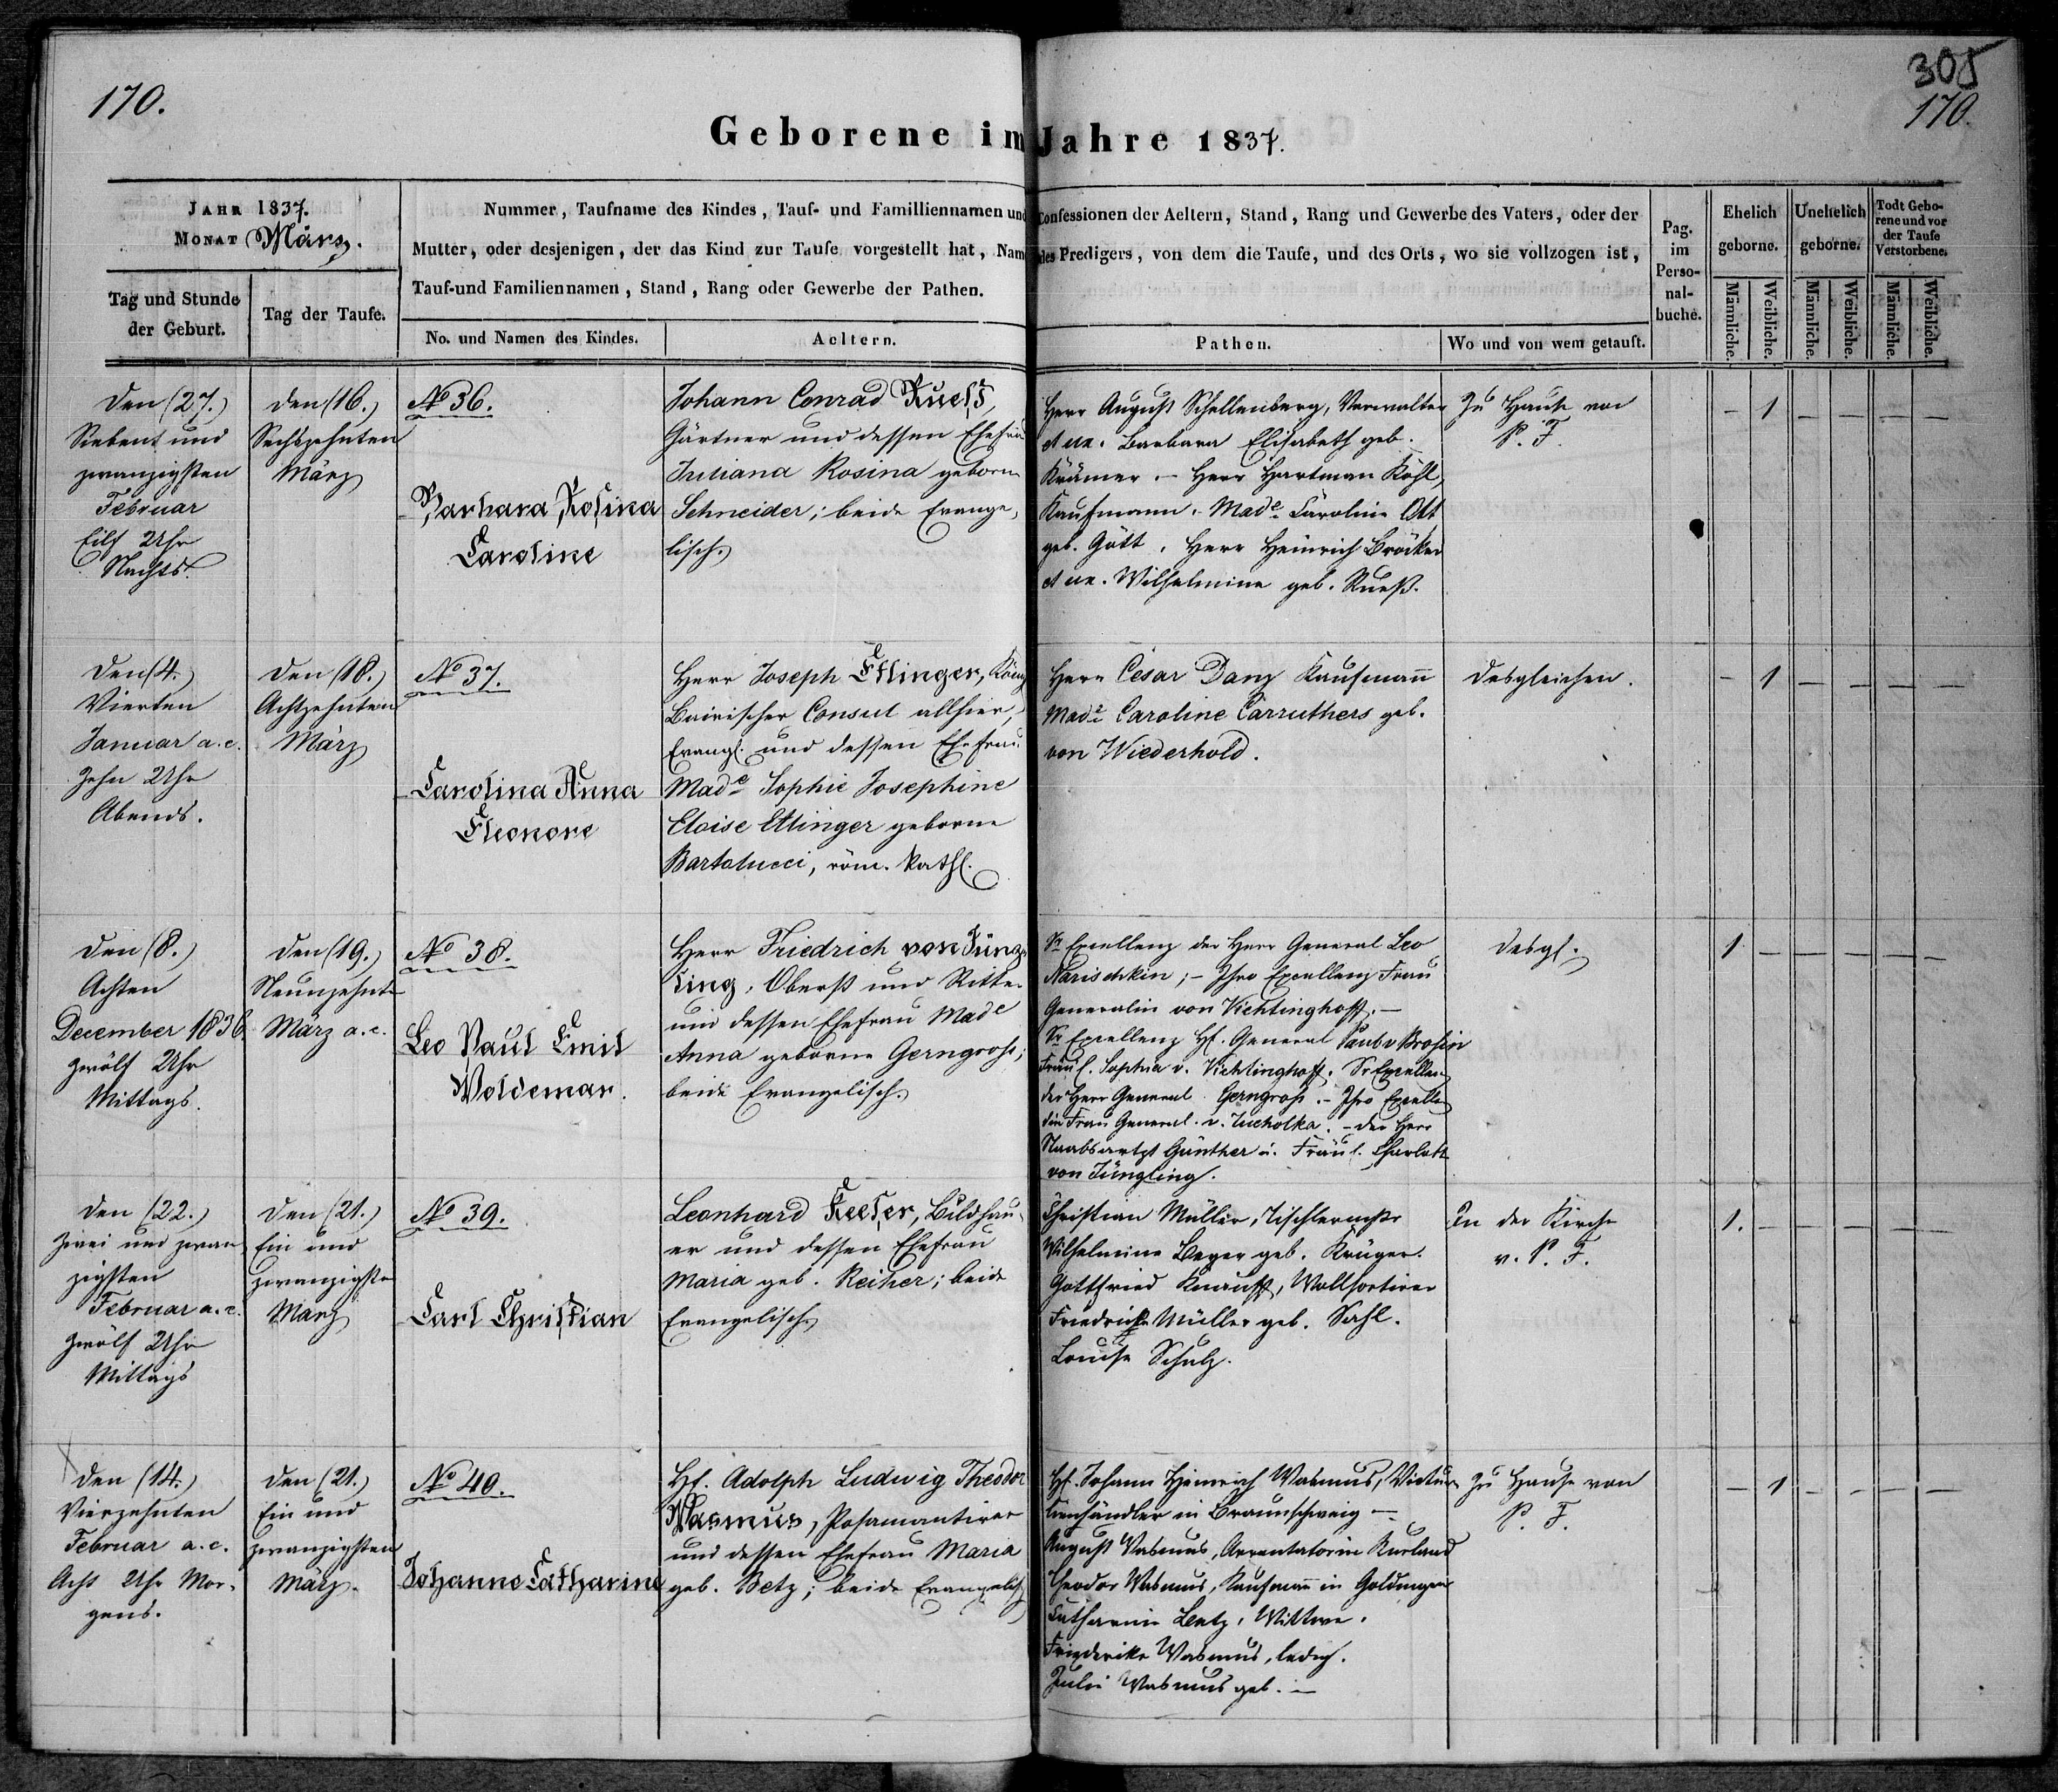 170.
305
170.
Geborene im Jahre 1837.
JAHR 1837.
MONAT März.
Tag und Stunde der Geburt.
Tag der Taufe.
Nummer, Taufname des Kindes, Tauf- und Familliennamen und Confessionen der Aeltern, Stand, Rang und Gewerbe des Vaters, oder der
Mutter, oder desjenigen, der das Kind zur Taufe vorgestellt hat, Name des Predigers, von dem die Taufe, und des Orts, wo sie vollzogen ist,
Tauf-und Familiennamen, Stand, Rang oder Gewerbe der Pathen.
No. und Namen des Kindes.
Aeltern.
Pathen.
Wo und von wem getauft.
Pag. im Perso-nal-buche.
Ehelich geborne.
Unehelich geborne.
Todt Gebo-rene und vor der Taufe Verstorbene.
Männliche. Weibliche. Männliche. Weibliche. Männliche. Weibliche.
Den (27.)
Siebent und
zwanzigsten
Februar
Eilf Uhr
Nachts.
den (16.)
Sechszehnten
März
No 36.
Barbara Rosina
Caroline
Johann Conrad Rueß,
Gärtner und dessen Ehefrau
Juliana Rosina geborne
Schneider; beide Evange-
lisch.
Herr August Schellenberg, Verwalter
et ux. Barbara Elisabeth geb.
Krämer. - Herr Hartman Köhl,
Kaufmann. Made Caroline Ott
geb. Gött. Herr Heinrich Bröcker
et ux. Wilhelmine geb. Rueß.
Zu Hause von
P. F.
- 1 - - - -
Den (4.)
Vierten
Januar a. c.
Zehn Uhr
Abends.
den (18.)
Achtzehnten
März
No 37.
Carolina Anna
Eleonore
Herr Joseph Ettlinger, König
Bairischer Consul allhier,
Evangl. und dessen Ehefrau
Made Sophie Josephine
Eloise Ettlinger geborne
Bartolucci, röm. kathl.
Herr César Dany Kaufmann
Made Caroline Carruthers geb.
von Wiederhold.
desgleichen.
- 1 - - - -
Den (8.)
Achten
December 1836.
zwölf Uhr
Mittags.
den (19.)
Neunzehnten
März a. c.
No 38.
Leo Paul Emil
Woldemar.
Herr Friedrich von Jüng-
ling, Oberst und Ritter
und dessen Ehefrau Made
Anna geborne Gerngroß;
beide Evangelisch.
Sr Excellenz der Herr General Leo
Narischkin; - Ihro Excellenz Frau
Generalin von Viehtinghoff. -
Sr Excellenz H. General
Fräul. Sophia v. Viehtinghoff. Sr Excellenz
der Herr General Gerngroß. - Ihro Excellenz
die Frau General. v. Tucholka. - der Herr
Staabsartzt Günther u. Fräul. Charlotte
von Jüngling.
desgl.
1 - - - - -
Den (22.)
zwei und zwan-
zigsten
Februar a. c.
zwölf Uhr
Mittags
den (21.)
Ein und
zwanzigsten
März
No 39.
Carl Christian
Leonhard Keeser, Bildhau-
er und dessen Ehefrau
Maria geb. Reiher; beide
Evangelisch.
Christian Müller, Tischlermstr
Wilhelmine Beyer geb. Krüger.
Gottfried Knauft, Wollsortirer
Friedricke Müller geb. Sahl.
Louise Schulz.
In der Kirche
v. P. F.
1. - - - - -
Den (14.)
Vierzehnten
Februar a. c.
Acht Uhr Mor-
gens.
den (21.)
Ein und
zwanzigsten
März.
No 40.
Johanne Catharine
H. Adolph Ludwig Theodor
Wasmus, Posamentirer
und dessen Ehefrau Maria
geb. Betz; beide Evangelisch
H. Johann Heinrich Wasmus, Victua-
lienhändler in Braunschweig -
August Wasmus, Arrentator in Kurland
Theodor Wasmus, Kaufmann in Goldingen
Catharine Betz, Wittwe.
Friederike Wasmus, ledig.
Julie Wasmus geb. -
Zu Hause von
P. F.
- 1 - - - -